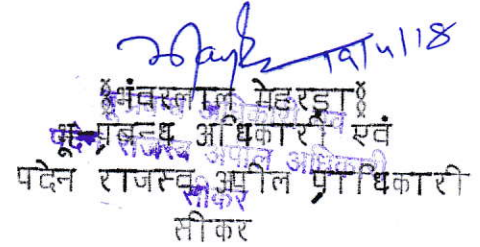 19/11/18
§भंवरलाल मेहरड़ा§
भू-प्रबन्ध अधिकारी एवं
पदेन राजस्व अपील प्राधिकारी
सीकर
सीकर